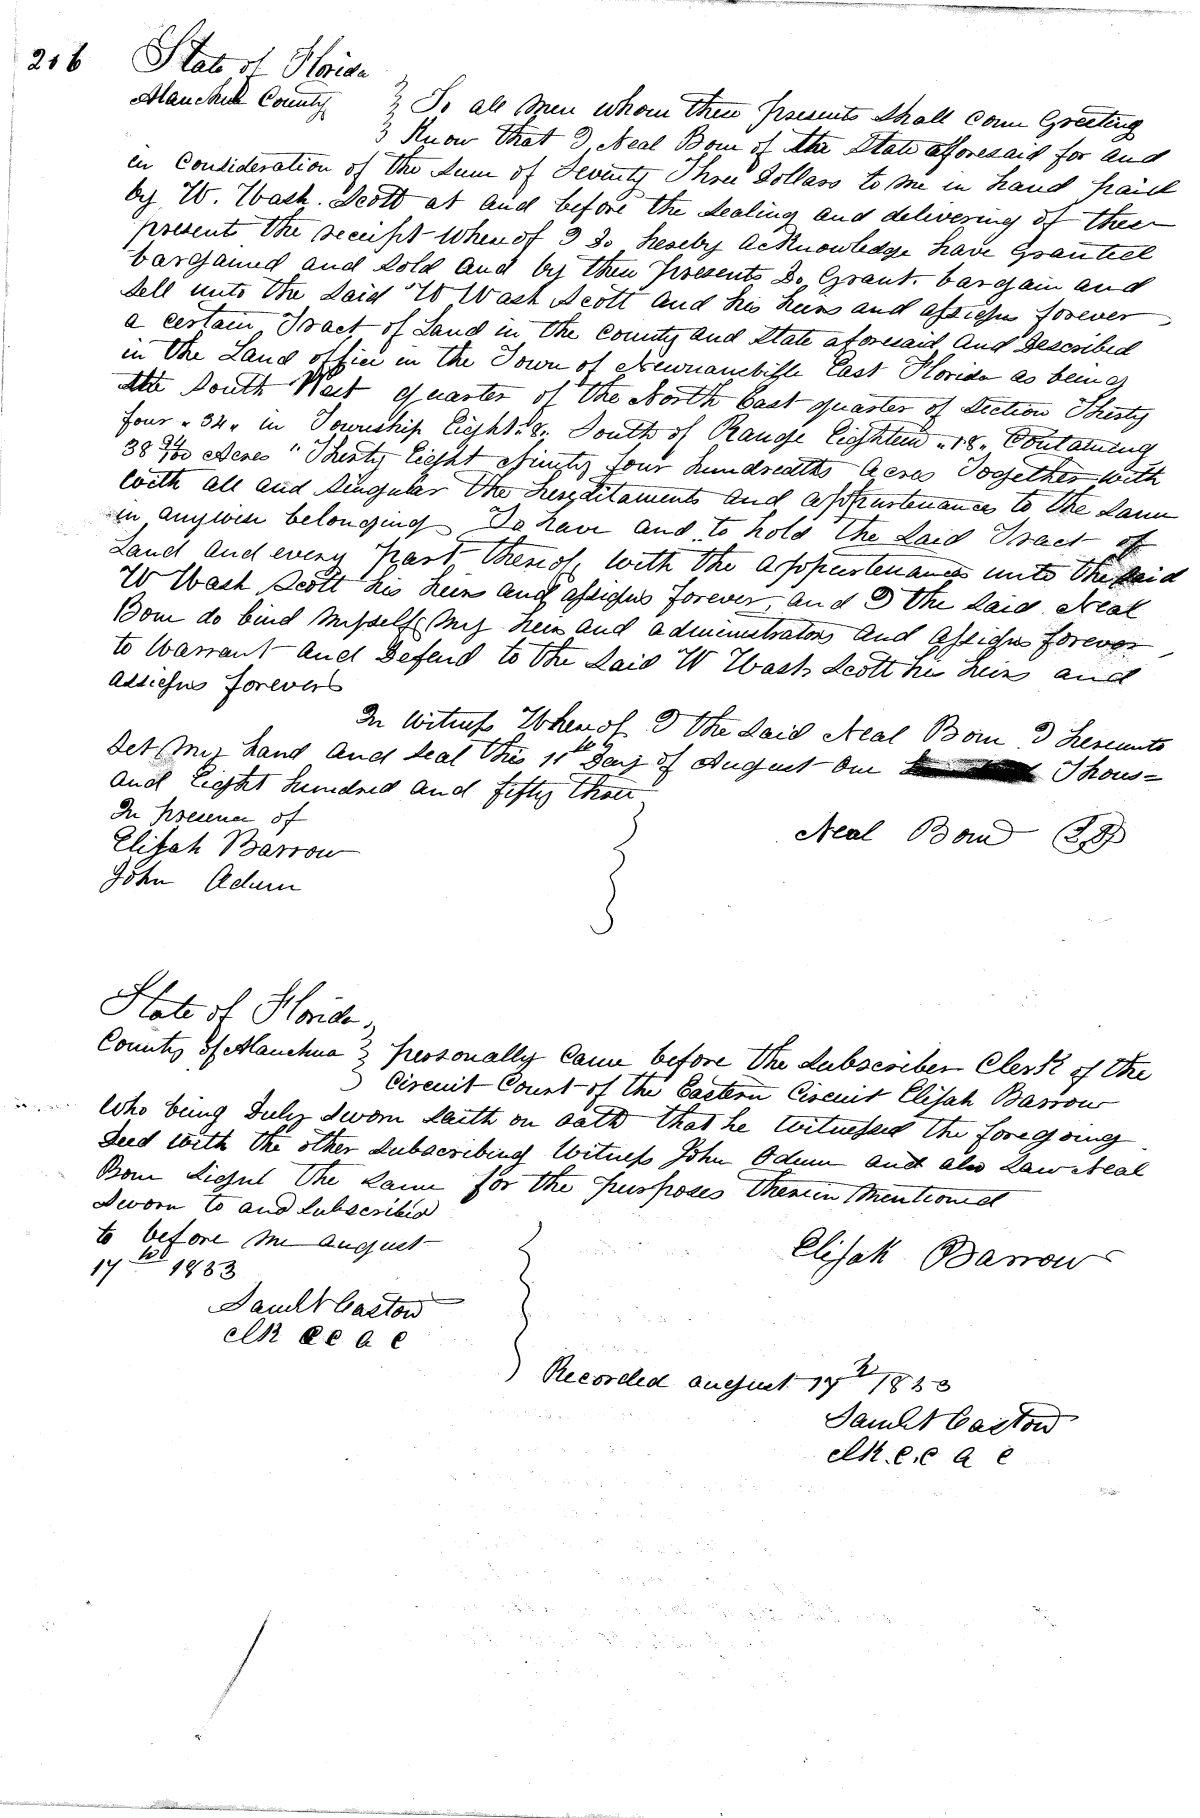 206
State of Florida
Alanchua County } To all men whom these presents Shall come Greeting
Know that I, Neal Bom of the State aforesaid for and
in Consideration of the Sum of Seventy Three Dollars to me in hand paid
by W. Wash. Scott at and before the Sealing and delivering of these
presents the receipt Whereof I do hereby acknowledge have Granted
bargained and Sold and by these presents Do Grant. bargain and
Sell unto the Said W Wash Scott and his heirs and assigns forever
a certain Tract of Land in the county and State aforesaid and Described
in the Land office in the Town of Newnansville East Florida as being
the South West quarter of the North East quarter of Section Thirty
four "34" in Township Eight "8" South of Range Eighteen "18" Containing
38 94/100 Acres "Thirty Eight Ninety four hundredths Acres Together with
with all and Singular the hereditaments and appurtenances to the Same
in anywise belonging To have and to hold the Said Tract of
Land and every part thereof, with the appurtenances unto the Said
W Wash Scott his heirs and assigns forever, and I the Said Neal
Bom do bind myself, my heirs and administrators and assigns forever
to Warrant and Defend to the Said W Wash Scott his heirs and
assigns forever
In Witness Whereof I the Said Neal Bom I hereunto
Set my hand and Seal this 11th Day of August one Thous=
and Eight hundred and fifty three
In presence of
Elijah Barrow
John Odum
Neal Bom
State of Florida
County of Alanchua } personally Came before the Subscriber Clerk of the
Circuit Court of the Eastern Circuit Elijah Barrow
Who being Duly Sworn Saith on oath that he witnessed the foregoing
Deed with the other Subscribing Witness John Odum and also Saw Neal
Bom Signe the Same for the purposes therein mentioned
Sworn to and Subscribed
to before me August
17th 1853
Elijah Barrow
Clk C C A C
Recorded August 17th 1853
Clk. C. C A C